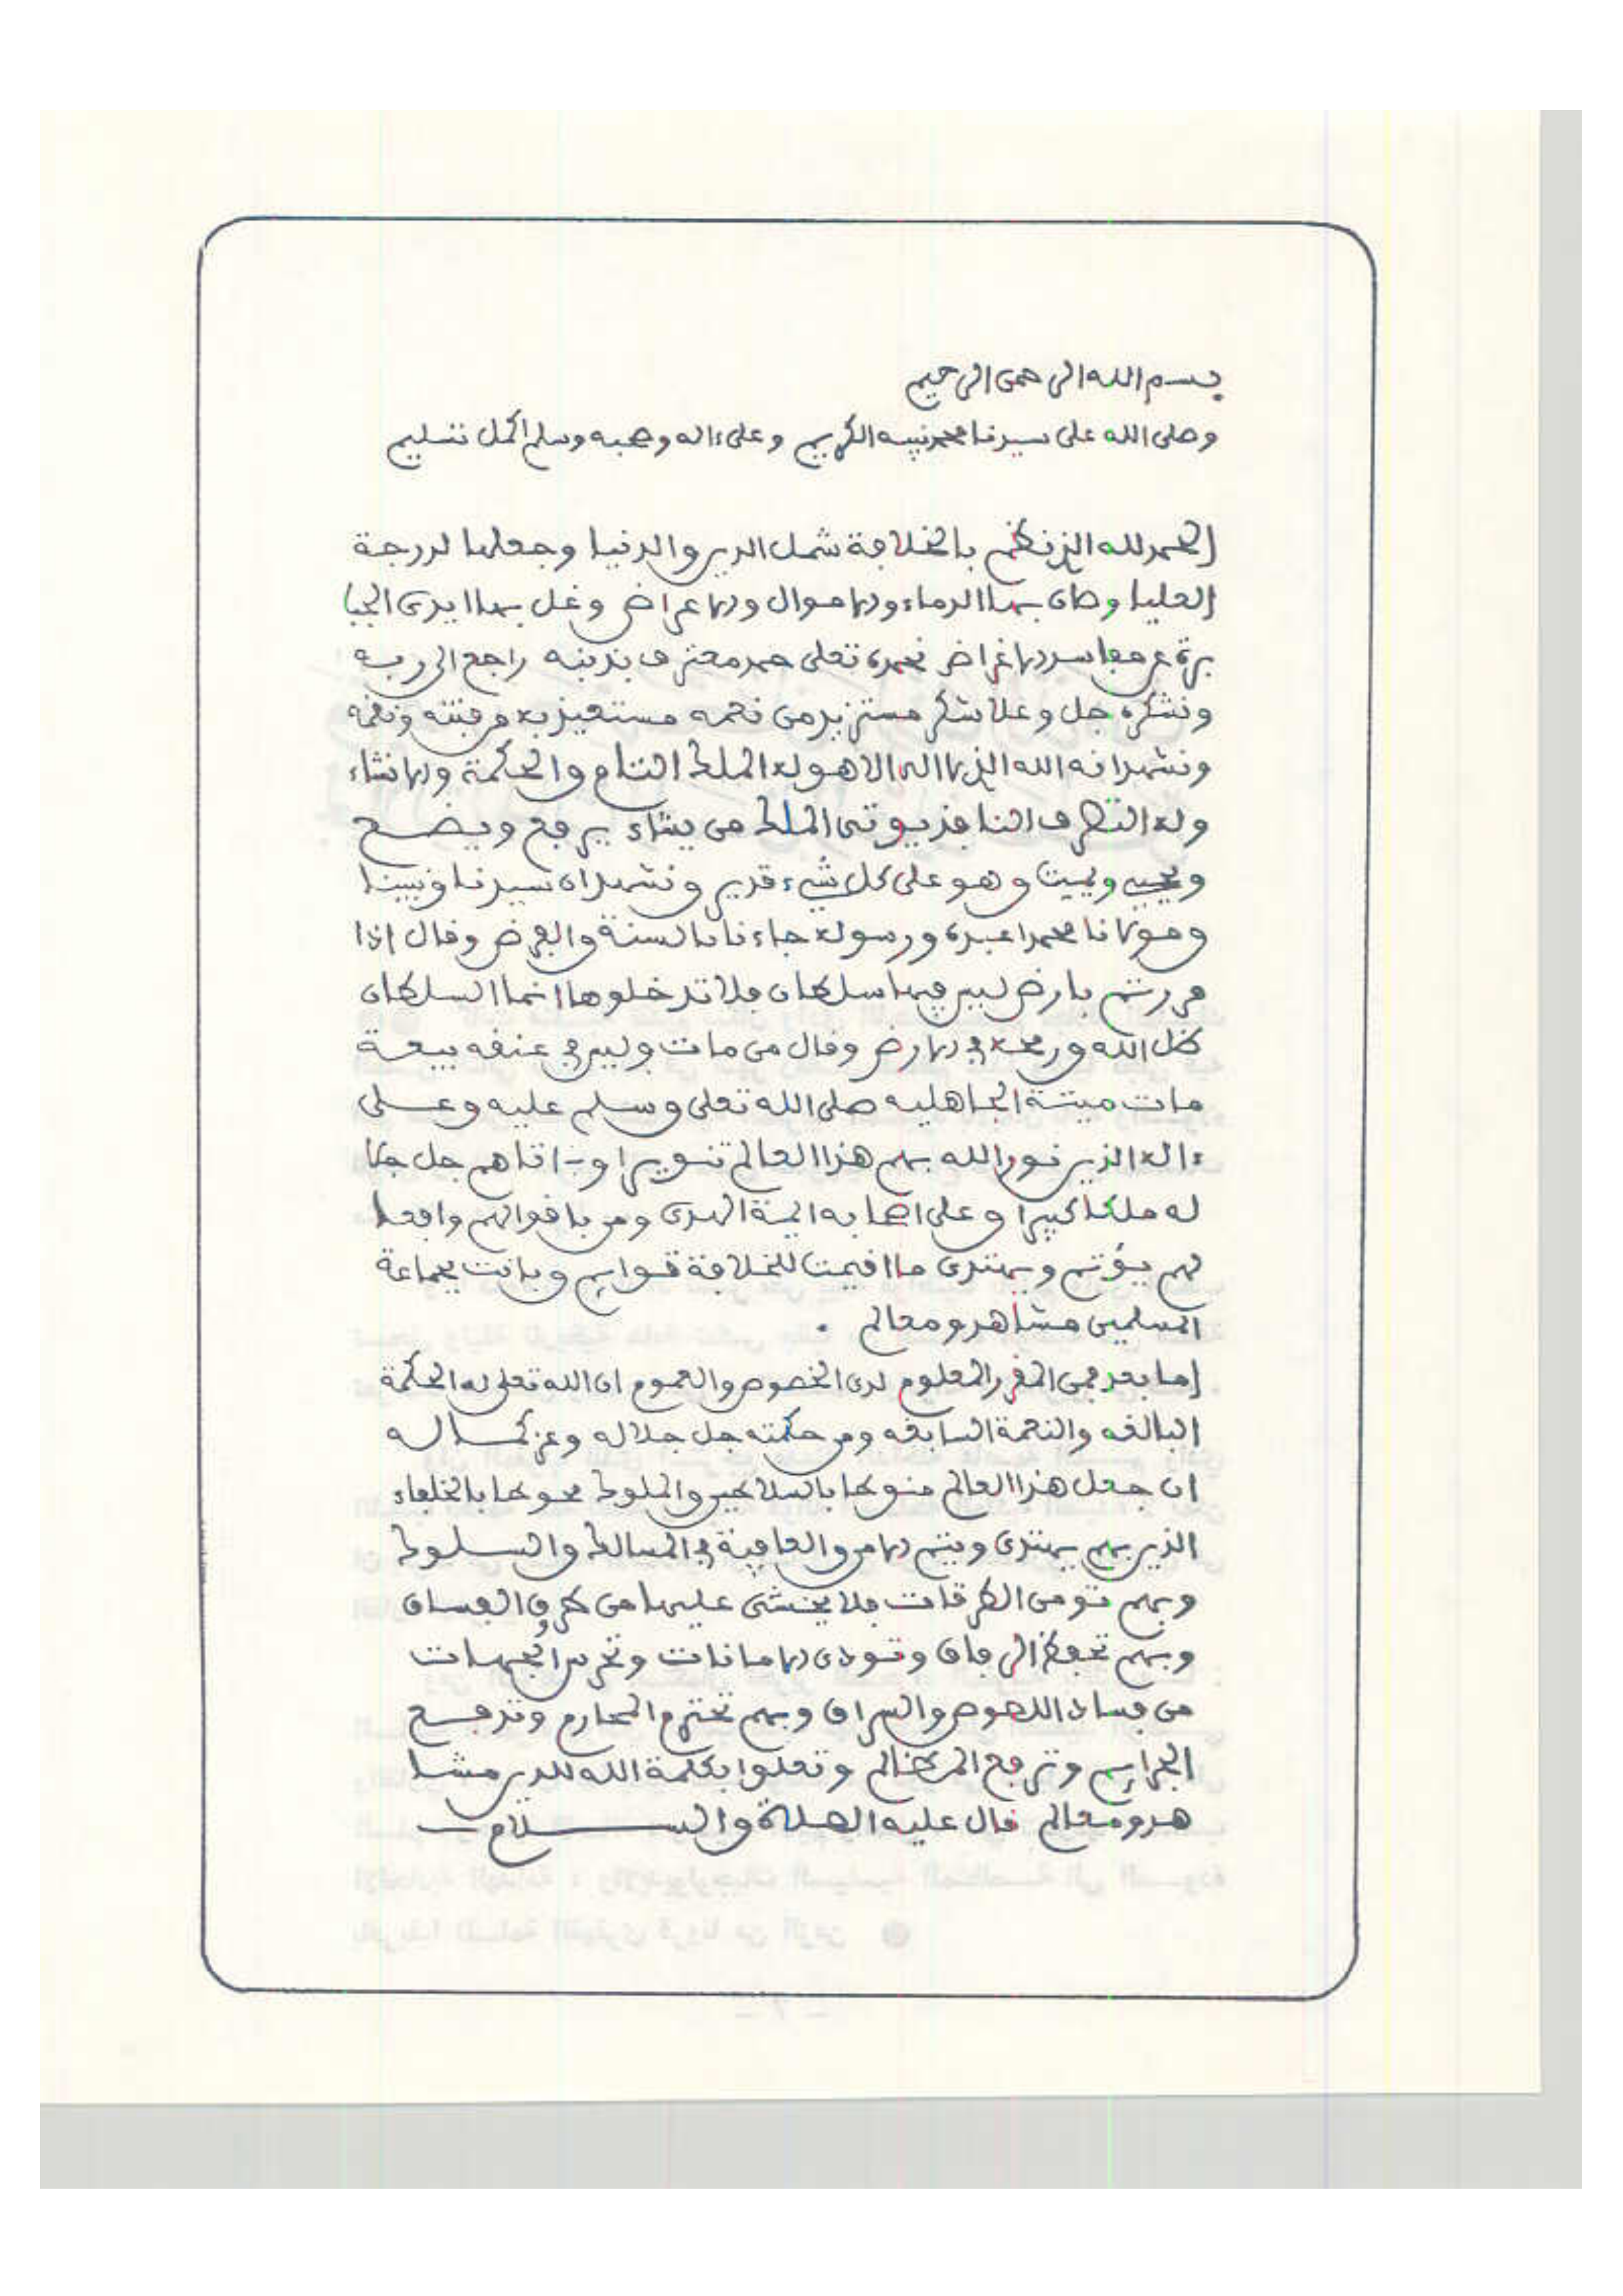 بسم الله الرحمن الرحيم
وصلى الله على سيدنا محمد نبيه الكريم وعلى ءاله وصحبه وسلم اكمل تسليم
الحمد لله الذي نظم بالخلافة شمل الدين والدنيا وجعلها لدرجة
العليا وصان بها الدماء والاموال والاعراض وغل بها ايدى الجبا
برة عن مفاسد الاغراض نحمده تعلى حمد معترف بذنبه راجع الى ربه
ونشكره جل وعلا شكر مستزيد من نعمه مستعيذ به من فتنته ونقمه
ونشهد انه الله الذي لا اله الا هو له الملك التام والحكمة والانشاء
وله التصرف النافذ يوتى الملك من يشاء يرفع ويضع
ويحيي ويميت وهو على كل شيء قدير ونشهد ان سيدنا ونبينا
ومولانا محمدا عبده ورسوله جاءنا بالسنة والفرض وقال اذا
مررتم بارض ليس فيها سلطان فلا تدخلوها انما السلطان
ظل الله ورمحه في الارض وقال من مات وليس في عنقه بيعة
مات ميتة الجاهليه صلى الله تعلى وسلم عليه وعلى
ءاله الذين نور الله بهم هذا العالم تنويرا وءاتاهم جل جلا
له ملكا كبيرا وعلى اصحابه ايمة الهدى ومن باقوالهم وافعا
لهم يؤتم ويهتدى ما اقيمت للخلافة قوايم وبانت بجماعة
المسلمين مشاهد ومعالم .
اما بعد فمن المقرر المعلوم لدى الخصوص والعموم ان الله تعلى له الحكمة
البالغه والنعمة السابغه ومن حكمته جل جلاله وعز كماله
ان جعل هذا العالم منوطا بالسلاطين والملوك محوطا بالخلفاء
الذين بهم يهتدى ويتم الامن والعافية في المسالك والسلوك
وبهم تومن الطرقات فلا يخشى عليها من طروق الفساق
وبهم تحفظ الرفاق وتودى الامانات وتحرس الجهات
من فساد اللصوص والسراق وبهم تحترم المحارم وتدفع
الجرايم وترفع المظالم وتعلوا بكلمة الله للدين مشا
هد ومعالم قال عليه الصلاة والسلام